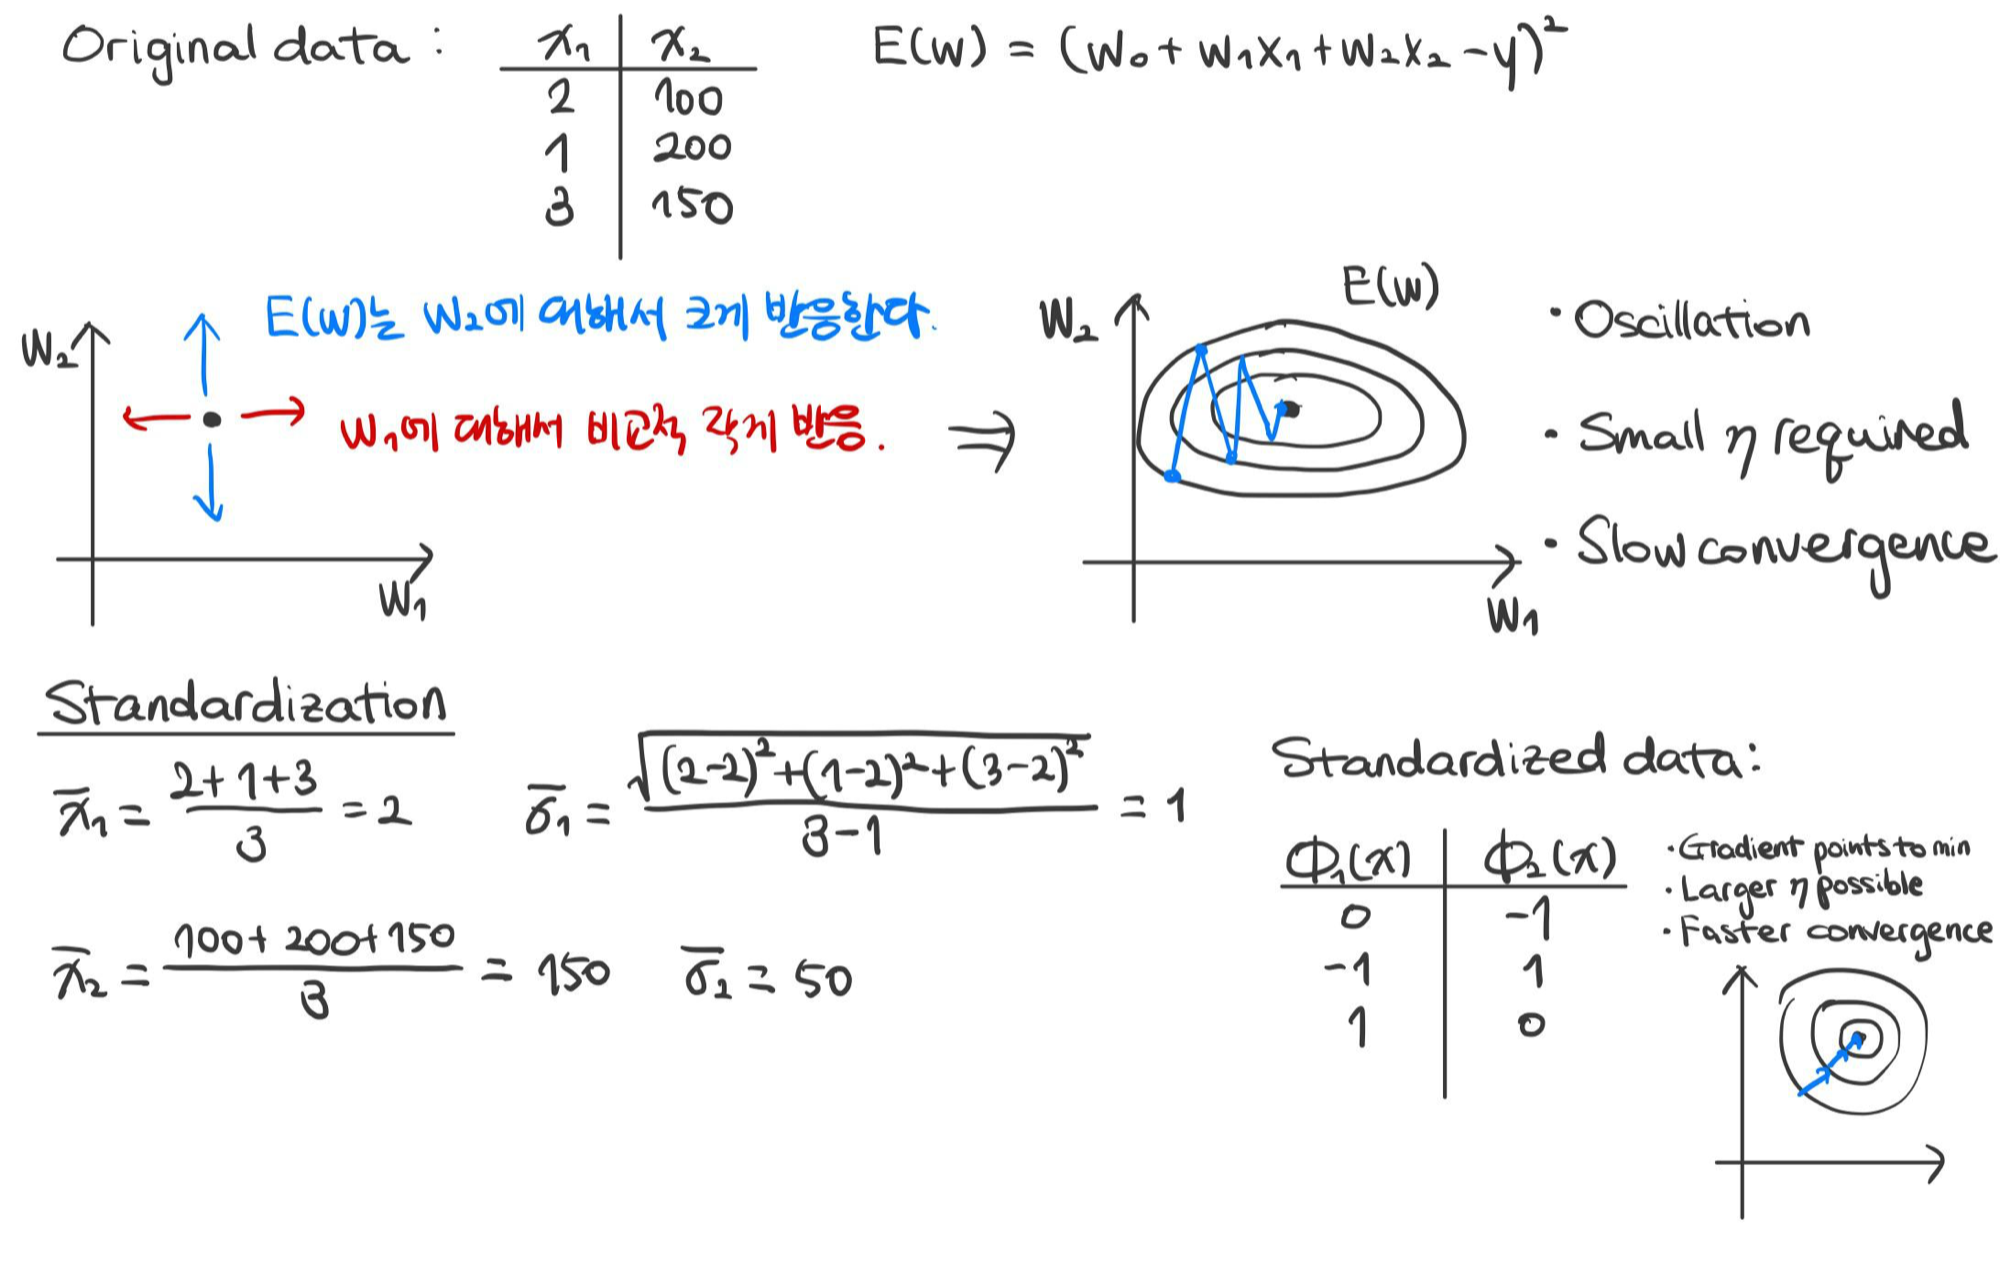 Original data :
x₁ | x₂
2 | 100
1 | 200
3 | 150
E(w) = (w₀ + w₁x₁ + w₂x₂ − y)²
E(w)는 w₂에 대해서 크게 반응한다.
w₁에 대해서 비교적 작게 반응.
w₂
w₁
⇒
E(w)
w₂
w₁
· Oscillation
· Small η required
· Slow convergence
Standardization
x̄₁ = (2+1+3)/3 = 2
σ̄₁ = √((2−2)²+(1−2)²+(3−2)²)/(3−1) = 1
x̄₂ = (100+200+150)/3 = 150
σ̄₂ = 50
Standardized data:
Φ₁(x) | Φ₂(x)
0 | −1
−1 | 1
1 | 0
· Gradient points to min
· Larger η possible
· Faster convergence